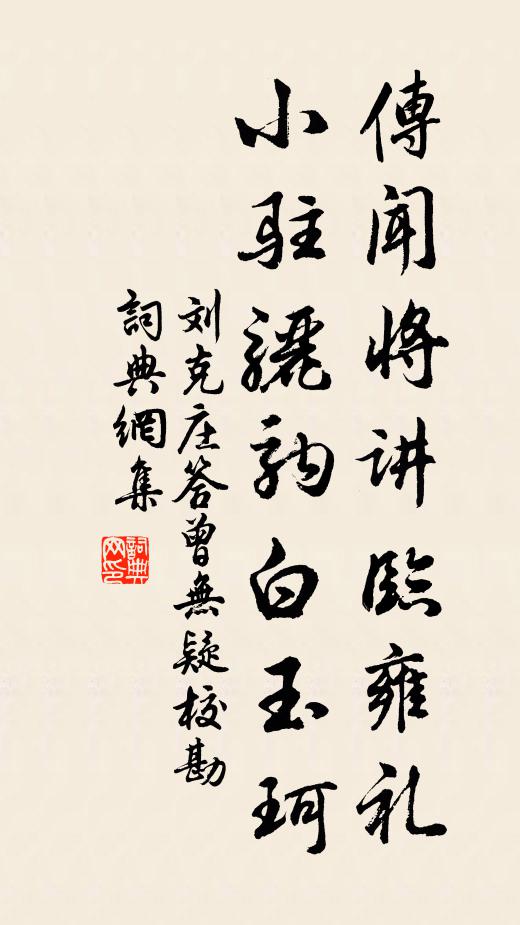 傳聞将讲臨雍礼
小駐驪駒白玉珂
刘克庄答曾無疑校勘
詞典網集
詞典网印